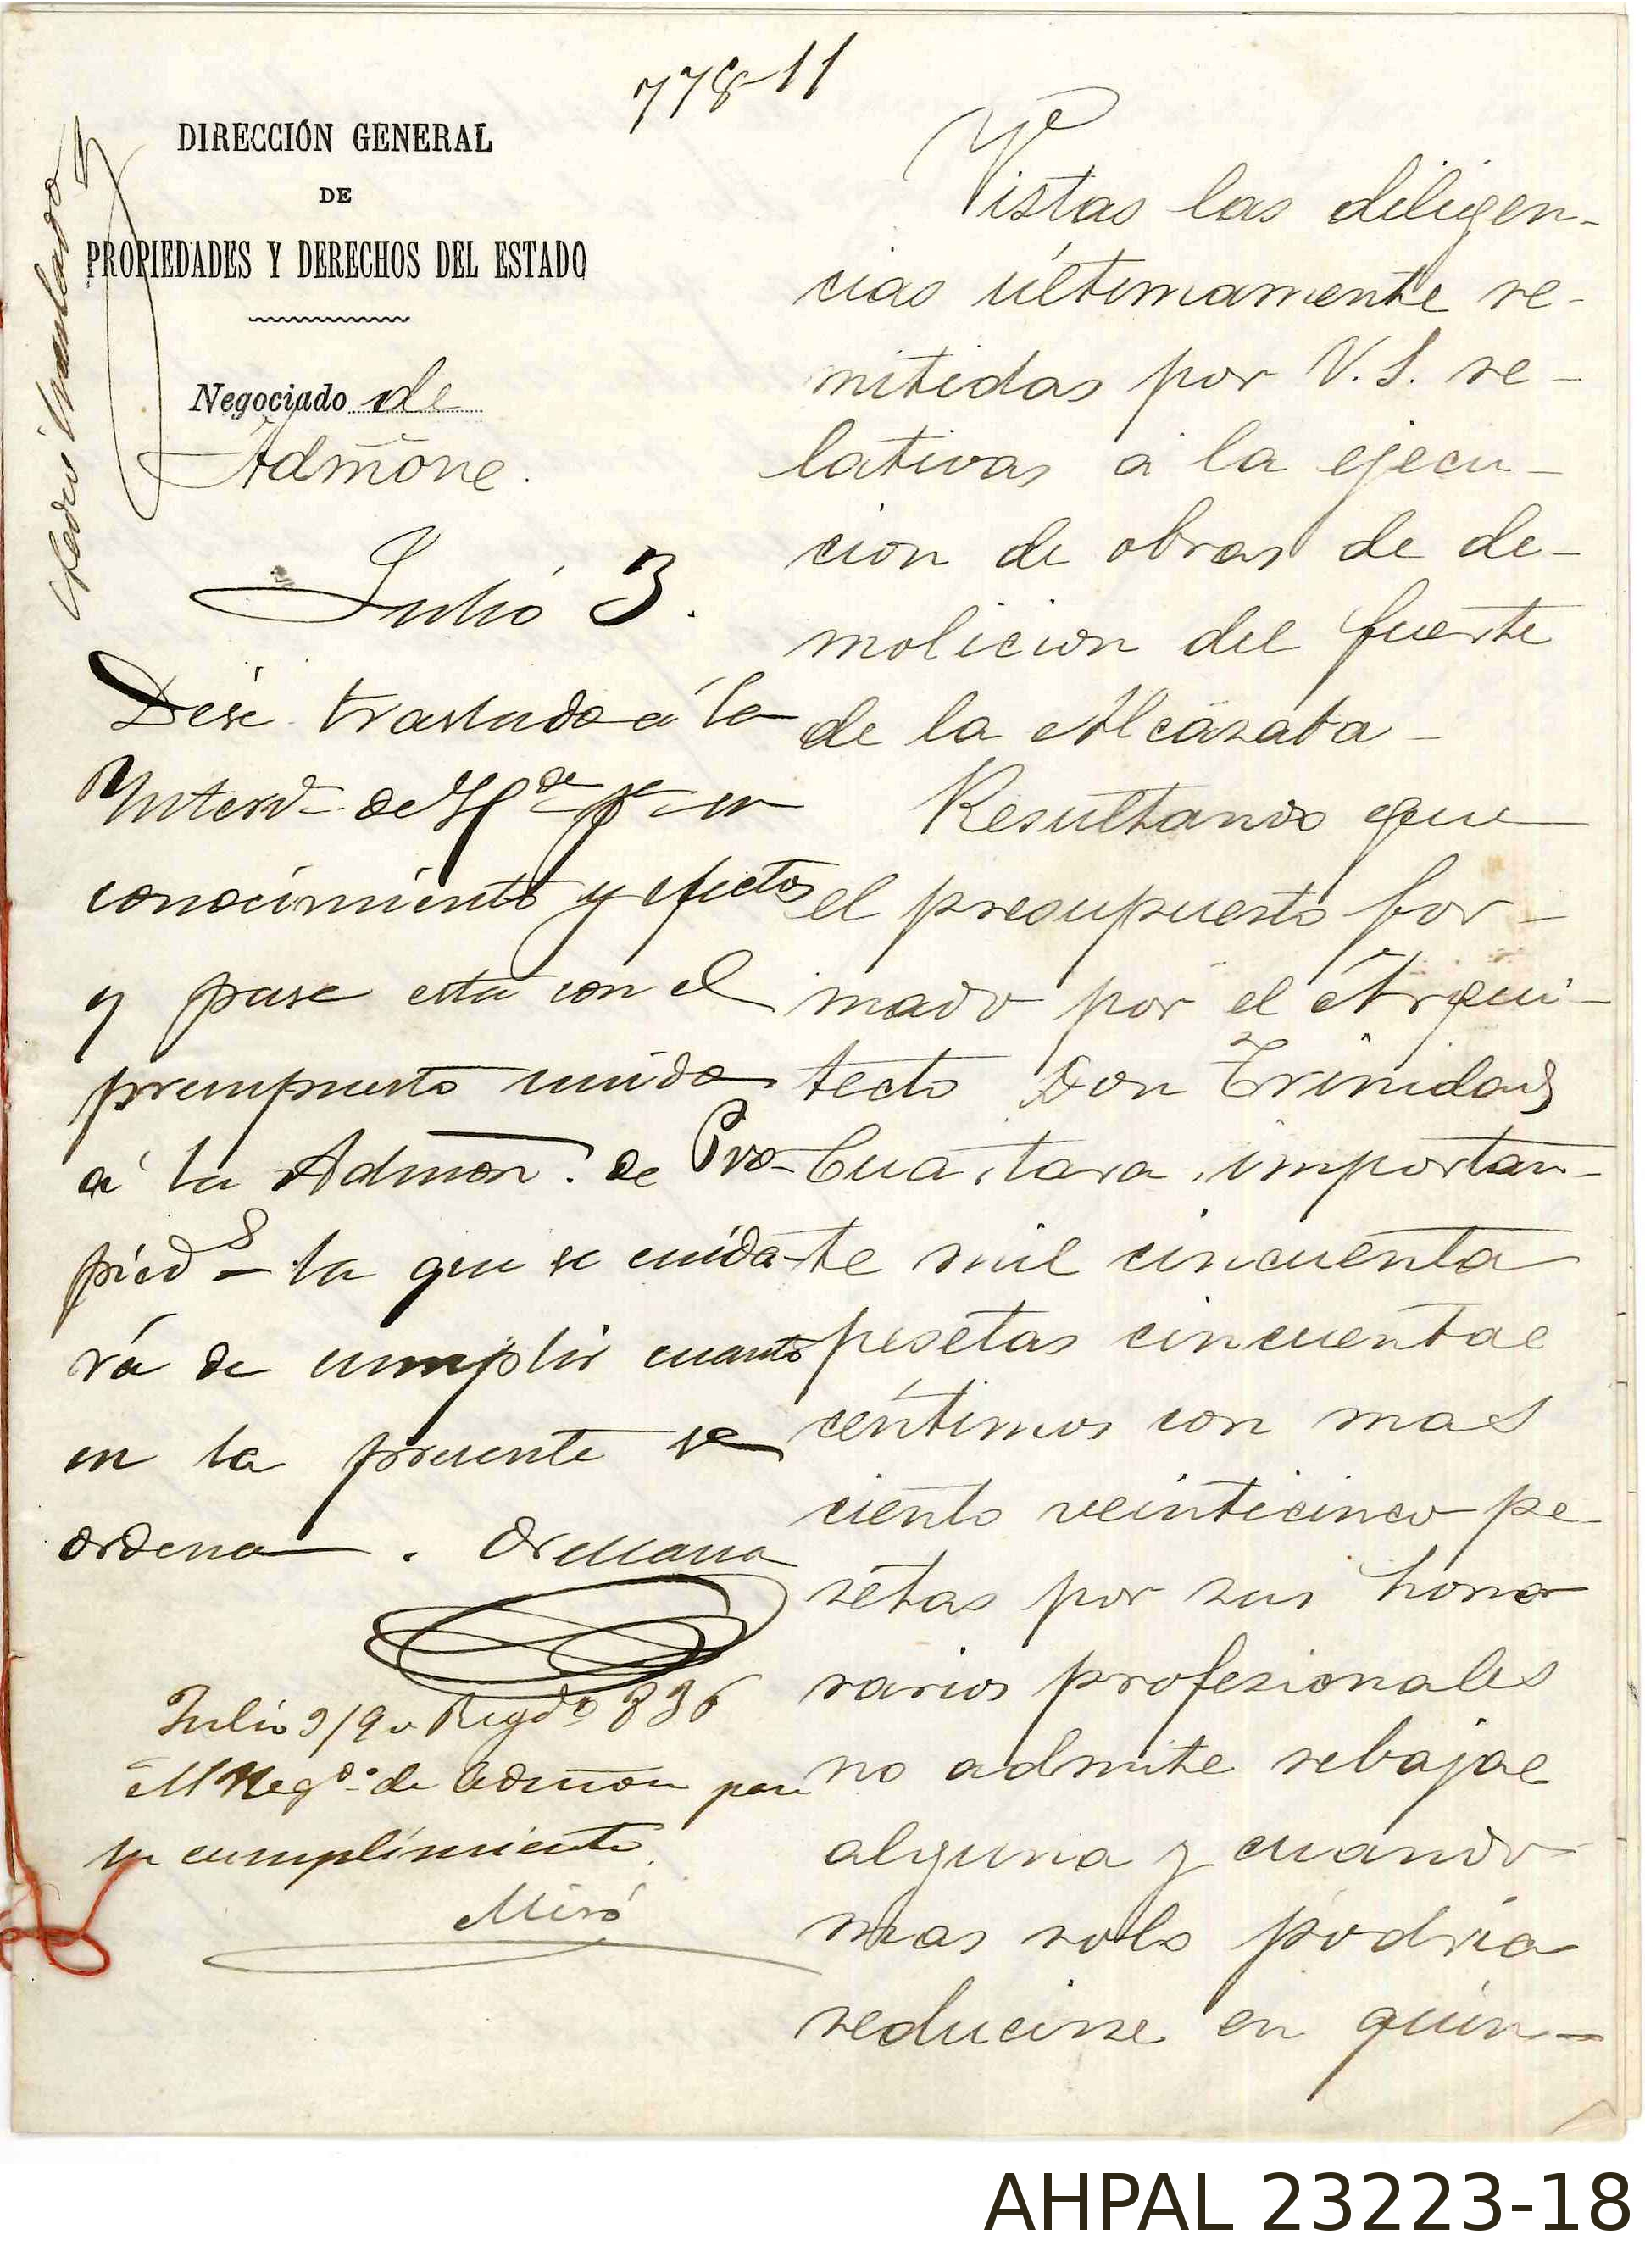 778-11
DIRECCIÓN GENERAL
DE
PROPIEDADES Y DERECHOS DEL ESTADO
Negociado de
Admōne.
Julio 3.
Dése traslado á la
Interv.n de H.da p.a su
conocimiento y efectos
y pase esta con el
presupuesto unido
á la Admon. de Pro-
pied.s la que se cuida-
rá de cumplir cuanto
en la presente se
ordena. Orellana
Julio 3/90 Regdo 836
Al Negdo. de Admon para
su cumplimiento.
Miró
Vistas las diligen-
cias últimamente re-
mitidas por V.S. re-
lativas á la ejecu-
cion de obras de de-
molicion del fuerte
de la Alcazaba-
Resultando que
el presupuesto for-
mado por el Arqui-
tecto Don Trinidad
Cuartara, importan-
te mil cincuenta
pesetas cincuenta
céntimos con mas
ciento veinticinco pe-
setas por sus hono
rarios profesionales
no admite rebaja
alguna y cuando
mas solo podria
reducirse en quin-
AHPAL 23223-18